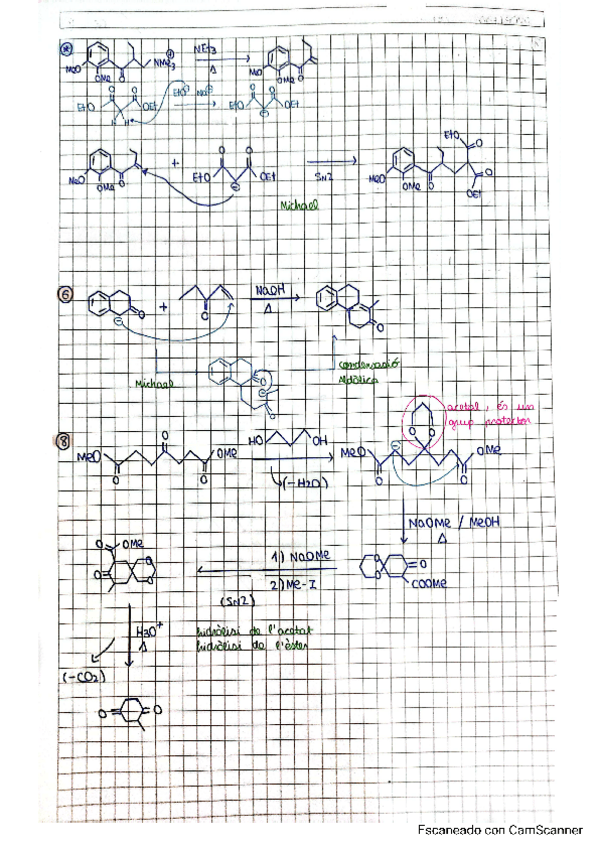 *
MeO
OMe
O
NMe3
⊕
NEt3
Δ
MeO
OMe
O
EtO
O
O
OEt
H
H
EtO⊖ Na⊕
EtO
O
O
OEt
⊖
MeO
OMe
O
+
EtO
O
O
OEt
⊖
SN2
Michael
MeO
OMe
O
EtO
O
O
OEt
6
O
⊖
+
O
NaOH
Δ
O
Michael
O
O
condensació
Aldòlica
8
MeO
O
O
O
OMe
HO
OH
(-H2O)
MeO
O
⊖
O
O
O
OMe
acetal, és un
grup protector
NaOMe / MeOH
Δ
O
O
O
COOMe
1) NaOMe
2) Me-I
(SN2)
O
OMe
O
O
O
H3O+
Δ
hidròlisi de l'acetal
hidròlisi de l'èster
(-CO2)
O
O
Escaneado con CamScanner